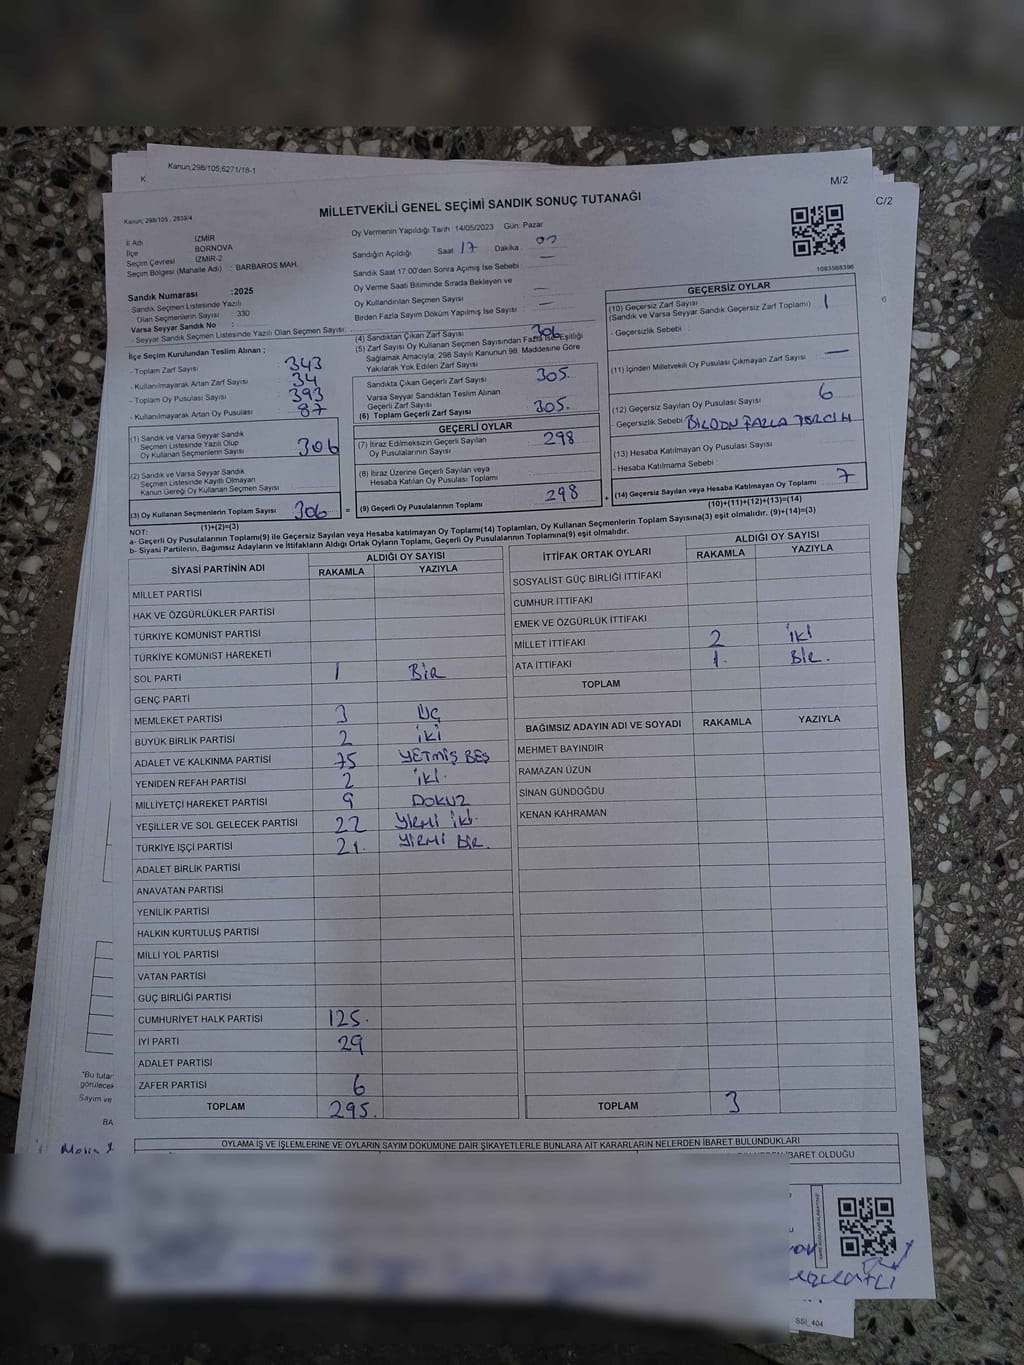 Kanun;298/105;6271/18-1
K
M/2
C/2
Kanun; 298/105 , 2839/4
MİLLETVEKİLİ GENEL SEÇİMİ SANDIK SONUÇ TUTANAĞI
İl Adı İZMİR
İlçe BORNOVA
Seçim Çevresi İZMİR-2
Seçim Bölgesi (Mahalle Adı) : BARBAROS MAH.
Sandık Numarası :2025
Sandık Seçmen Listesinde Yazılı
Olan Seçmenlerin Sayısı : 330
Varsa Seyyar Sandık No :
- Seyyar Sandık Seçmen Listesinde Yazılı Olan Seçmen Sayısı:
Oy Vermenin Yapıldığı Tarih : 14/05/2023 Gün: Pazar
Sandığın Açıldığı Saat 17 Dakika
Sandık Saat 17.00'den Sonra Açımış İse Sebebi —
Oy Verme Saati Bitiminde Sırada Bekleyen ve
Oy Kullandırılan Seçmen Sayısı —
Birden Fazla Sayım Döküm Yapılmış İse Sayısı —
1083568396
İlçe Seçim Kurulundan Teslim Alınan ;
- Toplam Zarf Sayısı 343
- Kullanılmayarak Artan Zarf Sayısı 34
- Toplam Oy Pusulası Sayısı 393
- Kullanılmayarak Artan Oy Pusulası 87
(1) Sandık ve Varsa Seyyar Sandık
Seçmen Listesinde Yazılı Olup
Oy Kullanan Seçmenlerin Sayısı 306
(2) Sandık ve Varsa Seyyar Sandık
Seçmen Listesinde Kayıtlı Olmayan
Kanun Gereği Oy Kullanan Seçmen Sayısı
(3) Oy Kullanan Seçmenlerin Toplam Sayısı 306 =
(1)+(2)=(3)
(4) Sandıktan Çıkan Zarf Sayısı 306
(5) Zarf Sayısı Oy Kullanan Seçmen Sayısından Fazla İse, Eşitliği
Sağlamak Amacıyla; 298 Sayılı Kanunun 98. Maddesine Göre
Yakılarak Yok Edilen Zarf Sayısı
Sandıkta Çıkan Geçerli Zarf Sayısı 305.
Varsa Seyyar Sandıktan Teslim Alınan
Geçerli Zarf Sayısı
(6) Toplam Geçerli Zarf Sayısı 305.
GEÇERLİ OYLAR
(7) İtiraz Edilmeksizin Geçerli Sayılan
Oy Pusulalarının Sayısı 298
(8) İtiraz Üzerine Geçerli Sayılan veya
Hesaba Katılan Oy Pusulası Toplamı
(9) Geçerli Oy Pusulalarının Toplamı 298 +
GEÇERSİZ OYLAR
(10) Geçersiz Zarf Sayısı
(Sandık ve Varsa Seyyar Sandık Geçersiz Zarf Toplamı) 1
- Geçersizlik Sebebi :
(11) İçinden Milletvekili Oy Pusulası Çıkmayan Zarf Sayısı —
(12) Geçersiz Sayılan Oy Pusulası Sayısı 6
- Geçersizlik Sebebi : BİRDEN FAZLA TERCİH
(13) Hesaba Katılmayan Oy Pusulası Sayısı
- Hesaba Katılmama Sebebi :
(14) Geçersiz Sayılan veya Hesaba Katılmayan Oy Toplamı 7
(10)+(11)+(12)+(13)=(14)
NOT:
a- Geçerli Oy Pusulalarının Toplamı(9) ile Geçersiz Sayılan veya Hesaba Katılmayan Oy Toplamı(14) Toplamları, Oy Kullanan Seçmenlerin Toplam Sayısına(3) eşit olmalıdır. (9)+(14)=(3)
b- Siyasi Partilerin, Bağımsız Adayların ve İttifakların Aldığı Ortak Oyların Toplamı, Geçerli Oy Pusulalarının Toplamına(9) eşit olmalıdır.
SİYASİ PARTİNİN ADI ALDIĞI OY SAYISI
RAKAMLA YAZIYLA
MİLLET PARTİSİ
HAK VE ÖZGÜRLÜKLER PARTİSİ
TÜRKİYE KOMÜNİST PARTİSİ
TÜRKİYE KOMÜNİST HAREKETİ
SOL PARTİ 1 BİR
GENÇ PARTİ
MEMLEKET PARTİSİ 3 ÜÇ
BÜYÜK BİRLİK PARTİSİ 2 İKİ
ADALET VE KALKINMA PARTİSİ 75 YETMİŞ BEŞ
YENİDEN REFAH PARTİSİ 2 İKİ.
MİLLİYETÇİ HAREKET PARTİSİ 9 DOKUZ
YEŞİLLER VE SOL GELECEK PARTİSİ 22 YİRMİ İKİ.
TÜRKİYE İŞÇİ PARTİSİ 21. YİRMİ BİR.
ADALET BİRLİK PARTİSİ
ANAVATAN PARTİSİ
YENİLİK PARTİSİ
HALKIN KURTULUŞ PARTİSİ
MİLLİ YOL PARTİSİ
VATAN PARTİSİ
GÜÇ BİRLİĞİ PARTİSİ
CUMHURİYET HALK PARTİSİ 125.
İYİ PARTİ 29
ADALET PARTİSİ
ZAFER PARTİSİ 6
TOPLAM 295.
İTTİFAK ORTAK OYLARI ALDIĞI OY SAYISI
RAKAMLA YAZIYLA
SOSYALİST GÜÇ BİRLİĞİ İTTİFAKI
CUMHUR İTTİFAKI
EMEK VE ÖZGÜRLÜK İTTİFAKI
MİLLET İTTİFAKI 2 İKİ
ATA İTTİFAKI 1. BİR.
TOPLAM
BAĞIMSIZ ADAYIN ADI VE SOYADI RAKAMLA YAZIYLA
MEHMET BAYINDIR
RAMAZAN ÜZÜN
SİNAN GÜNDOĞDU
KENAN KAHRAMAN
TOPLAM 3
OYLAMA İŞ VE İŞLEMLERİNE VE OYLARIN SAYIM DÖKÜMÜNE DAİR ŞİKAYETLERLE BUNLARA AİT KARARLARIN NELERDEN İBARET BULUNDUKLARI
İBARET OLDUĞU
"Bu tutar
görülecek
Sayım ve
BA
SSİ_404